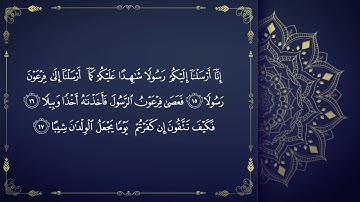 إِنَّآ أَرْسَلْنَآ إِلَيْكُمْ رَسُولًا شَٰهِدًا عَلَيْكُمْ كَمَآ أَرْسَلْنَآ إِلَىٰ فِرْعَوْنَ
رَسُولًا ١٥ فَعَصَىٰ فِرْعَوْنُ ٱلرَّسُولَ فَأَخَذْنَٰهُ أَخْذًا وَبِيلًا ١٦
فَكَيْفَ تَتَّقُونَ إِن كَفَرْتُمْ يَوْمًا يَجْعَلُ ٱلْوِلْدَٰنَ شِيبًا ١٧